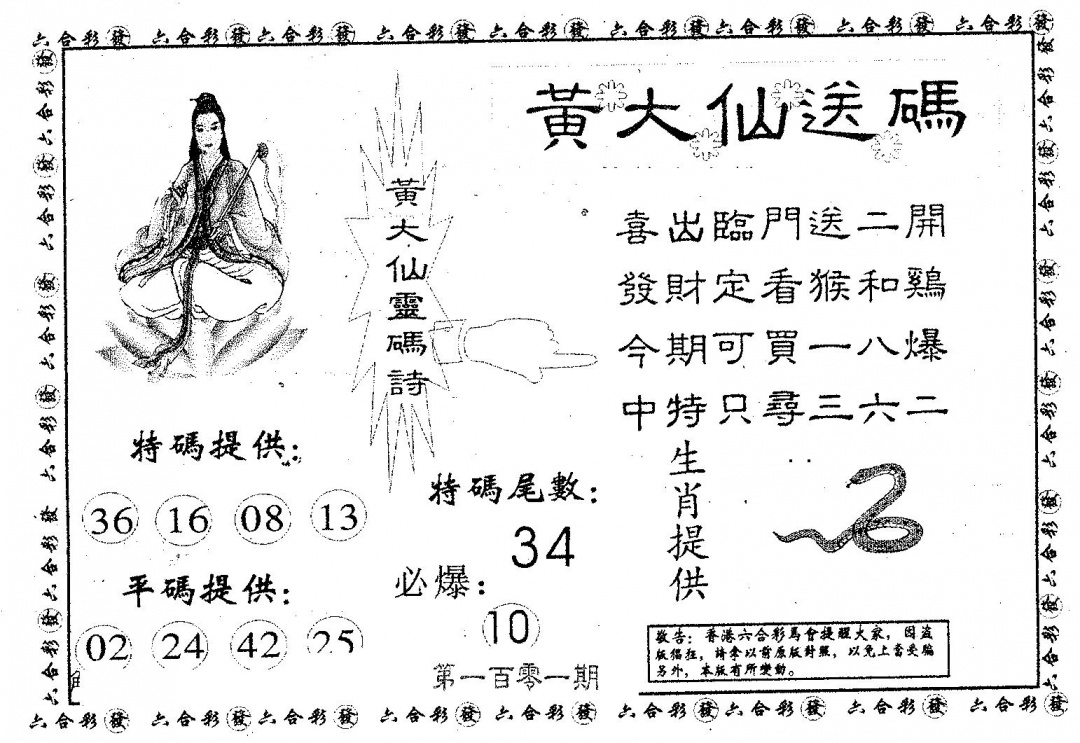 六合彩發 六合彩發 六合彩發 六合彩發 六合彩發 六合彩發 六合彩發 六合彩發 六合彩發
黃大仙送碼
黃大仙靈碼詩
喜出臨門送二開
發財定看猴和鷄
今期可買一八爆
中特只尋三六二
特碼提供：
36 16 08 13
平碼提供：
02 24 42 25
特碼尾數：
34
必爆：
10
第一百零一期
生肖提供
敬告：香港六合彩馬會提醒大家，因盜
版猖狂，請拿以前原版對照，以免上當受騙
另外，本版有所變動。
六合彩發 六合彩發 六合彩發 六合彩發 六合彩發 六合彩發 六合彩發 六合彩發 六合彩發